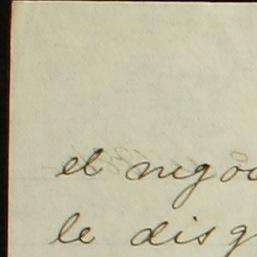 el nego
le disg